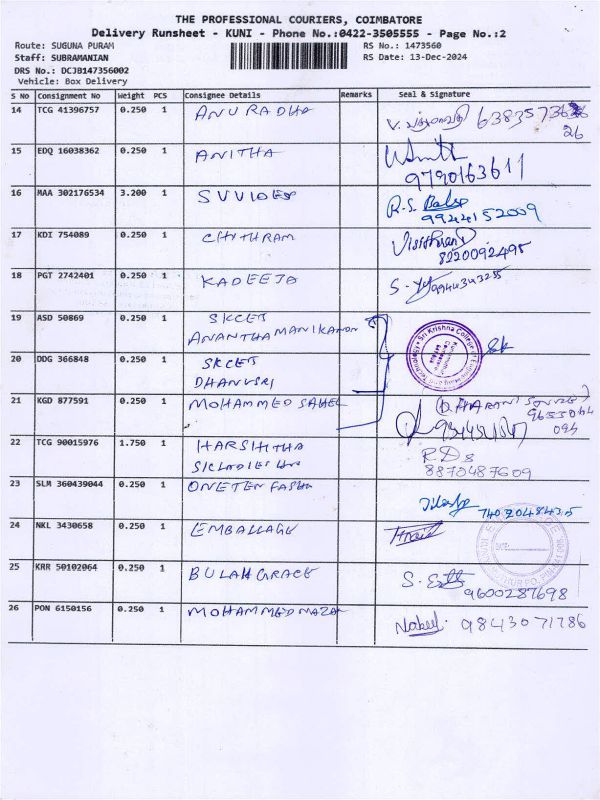 THE PROFESSIONAL COURIERS, COIMBATORE
Delivery Runsheet - KUNI - Phone No.:0422-3505555 - Page No.:2
Route: SUGUNA PURAM RS No.: 1473560
Staff: SUBRAMANIAN RS Date: 13-Dec-2024
DRS No.: DCJB147356002
Vehicle: Box Delivery
S No Consignment No Weight PCS Consignee Details Remarks Seal & Signature
14 TCG 41396757 0.250 1 ANURADHA
15 EDQ 16038362 0.250 1 ANITHA
9790163611
16 MAA 302176534 3.200 1 SVVIDES R.S. Balu
9944152009
17 KDI 754089 0.250 1 CHITHRAM
8220092495
18 PGT 2742401 0.250 1 KADEEJA
9944343255
19 ASD 50869 0.250 1 SKCET
ANANTHAMANIKANDN
Sri Krishna College of
20 DDG 366848 0.250 1 SKCET
DHANUSRI
21 KGD 877591 0.250 1 MOHAMMED SAHEL
22 TCG 90015976 1.750 1 HARSHITHA RDs
8870487609
23 SLM 360439044 0.250 1 ONETEN FASH
7402048435
24 NKL 3430658 0.250 1 EMBALLAGE
DATE:
25 KRR 50102064 0.250 1 BULAH GRACE
9600287698
26 PON 6150156 0.250 1 MOHAMMED NAZAR
Nabeel. 9843071786